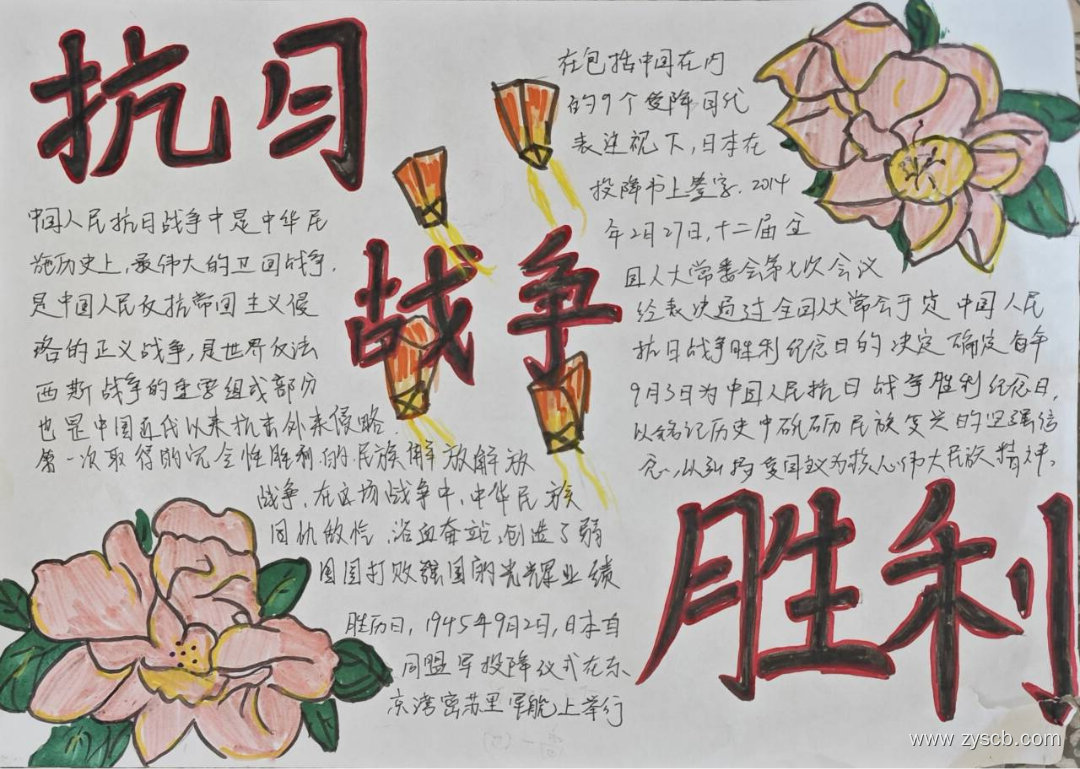 抗日
战争
胜利
中国人民抗日战争中是中华民
族历史上,最伟大的卫国战争,
是中国人民反抗帝国主义侵
略的正义战争,是世界反法
西斯战争的重要组成部分
也是中国近代以来抗击外来侵略
第一次取得的完全性胜利的民族解放解放
战争,在这场战争中,中华民族
同仇敌忾,浴血奋站,创造了弱
国国打败强国的光辉业绩
胜历日,1945年9月2日,日本自
同盟军投降仪式在东
京湾密苏里军舰上举行
在包括中国在内
的9个受降国代
表连视下,日本在
投降书上签字.2014
年2月27日,十二届全
国人大常委会第七次会议
经表决通过全国人大常会于定中国人民
抗日战争胜利纪念日的决定确定每年
9月3日为中国人民抗日战争胜利纪念日,
以铭记历史中砥砺民族复兴的坚强信
念,以弘扬爱国主义为核心伟大民族精神.
www.zyscb.com